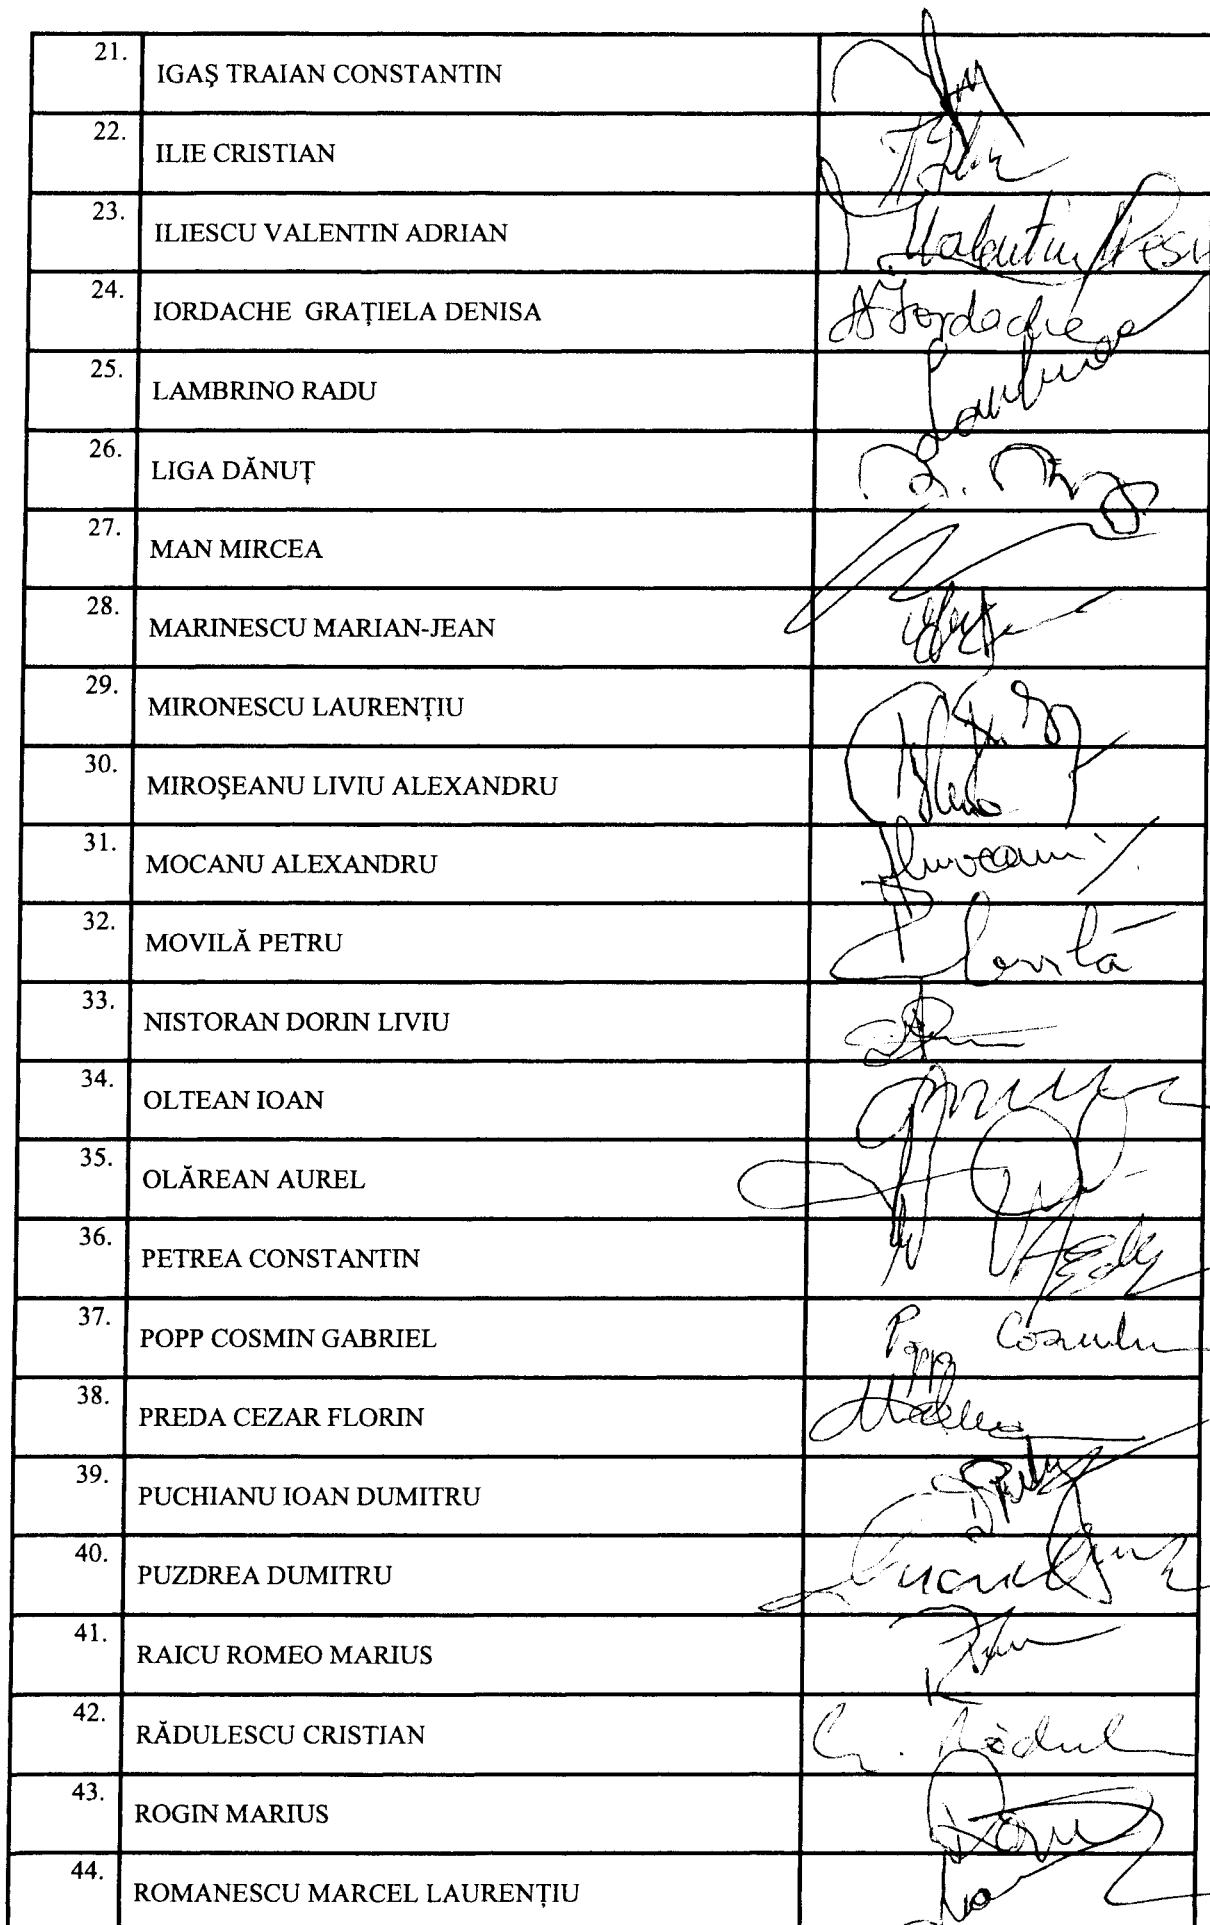 21. IGAŞ TRAIAN CONSTANTIN
22. ILIE CRISTIAN
23. ILIESCU VALENTIN ADRIAN Valentin
24. IORDACHE GRAŢIELA DENISA Iordache
25. LAMBRINO RADU
26. LIGA DĂNUŢ
27. MAN MIRCEA
28. MARINESCU MARIAN-JEAN
29. MIRONESCU LAURENŢIU
30. MIROŞEANU LIVIU ALEXANDRU
31. MOCANU ALEXANDRU
32. MOVILĂ PETRU
33. NISTORAN DORIN LIVIU
34. OLTEAN IOAN
35. OLĂREAN AUREL
36. PETREA CONSTANTIN
37. POPP COSMIN GABRIEL Popp Cosmin
38. PREDA CEZAR FLORIN
39. PUCHIANU IOAN DUMITRU
40. PUZDREA DUMITRU
41. RAICU ROMEO MARIUS
42. RĂDULESCU CRISTIAN
43. ROGIN MARIUS
44. ROMANESCU MARCEL LAURENŢIU